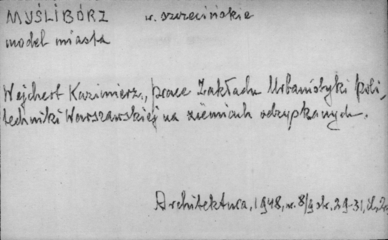 MYŚLIBÓRZ w. szczecińskie
model miasta
Wejchert Kazimierz, prace Zakładu Urbanistyki Poli-
techniki Warszawskiej na ziemiach odzyskanych.
Architektura, 1948, n. 8/9 str. 29-31, il.